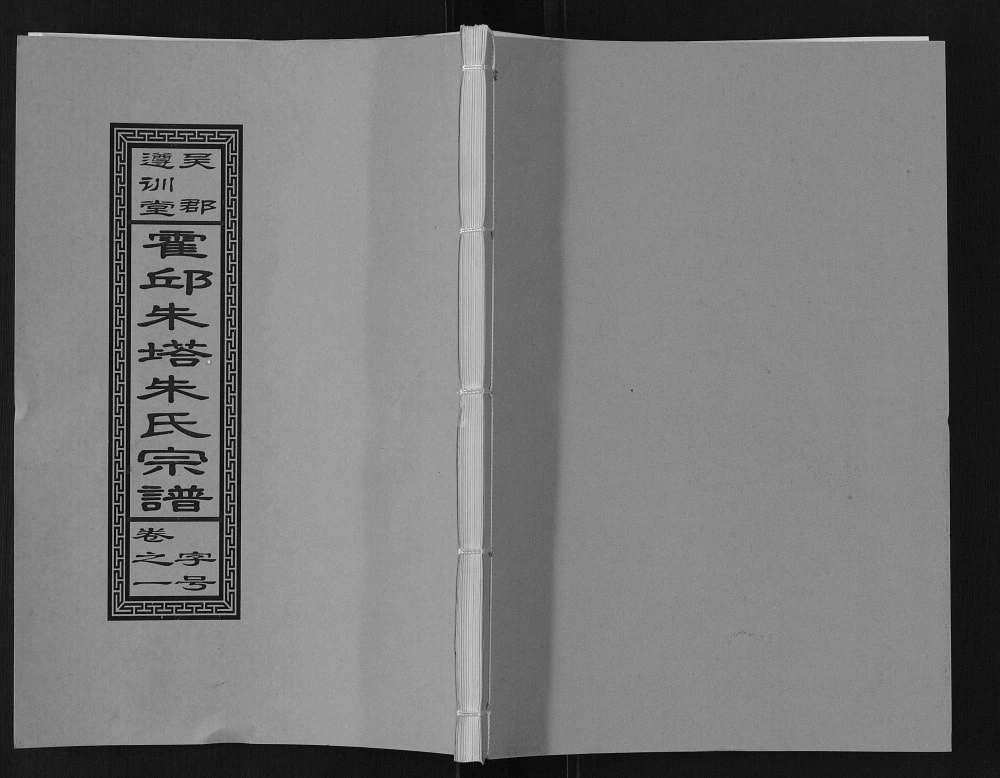 吴郡
遵训堂
霍邱朱塔朱氏宗譜
字号
卷之一